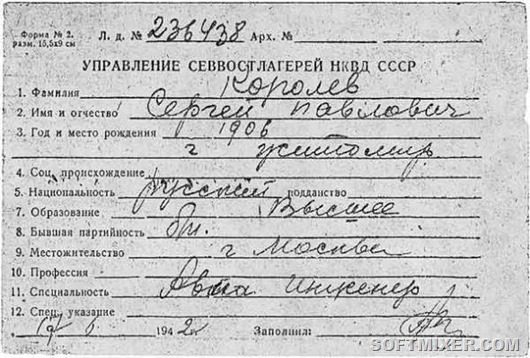 Форма № 2.
разм. 15,5х9 см
Л. д. № 236438 Арх. №
УПРАВЛЕНИЕ СЕВВОСТЛАГЕРЕЙ НКВД СССР
1. Фамилия Королев
2. Имя и отчество Сергей Павлович
3. Год и место рождения 1906
г Житомир
4. Соц. происхождение
5. Национальность русский подданство
7. Образование Высшее
8. Бывшая партийность бп.
9. Местожительство г Москва
10. Профессия
11. Специальность Авиа Инженер
12. Спец. указание
194 Заполнил:
SOFTMIXER.COM